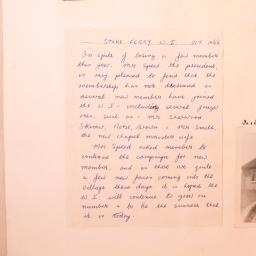 STOKE FERRY W.I. OCT 1966
In spite of losing a few members
this year, Mrs Speed the president,
is very pleased to find that the
membership has not decreased as
several new members have joined
the W.I - including several younger
ones, such as - Mrs
Mrs Smith,
the new chapel ministers wife.
Mrs Speed asked members to
continue the campaign for new
members, and as there are quite
a few new faces coming into the
village these days it is hoped the
W.I. will continue to grow in
numbers & to be the success that
it is today.